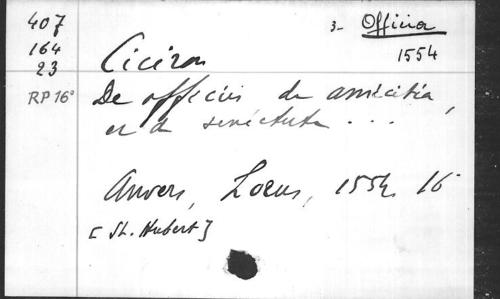 407
164
23
RP 16°
3- Officia
1554
Cicéron
De officiis de amicitia,
et de senectute ...
Anvers, Loeus, 1554 16°
[St. Hubert]